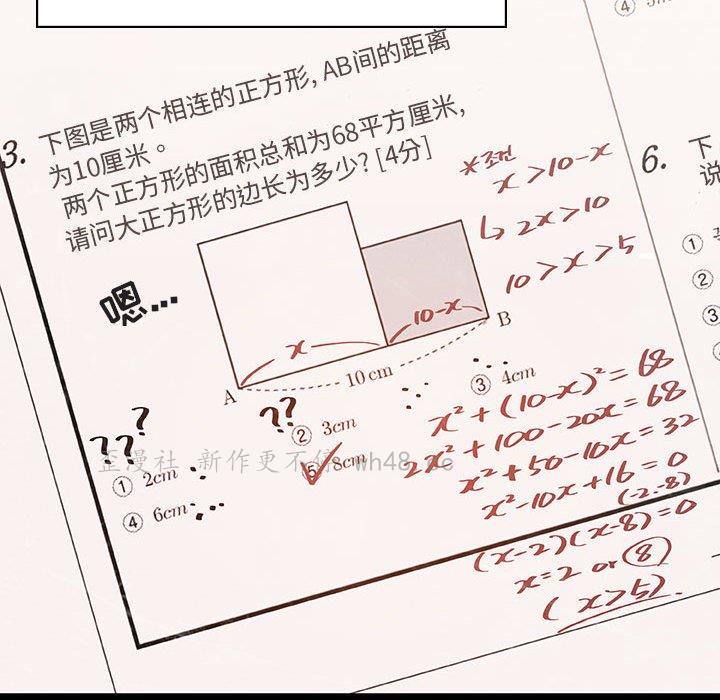 3. 下图是两个相连的正方形, AB间的距离
为10厘米。
两个正方形的面积总和为68平方厘米,
请问大正方形的边长为多少? [4分]
x > 10-x
↳ 2x > 10
10 > x > 5
嗯...
x
10-x
A
10 cm
B
???
??
① 2cm
② 3cm
③ 4cm
④ 6cm
⑤ 8cm
x²+(10-x)²=68
2x²+100-20x=68
x²+50-10x=32
x²-10x+16=0
(-2.-8)
(x-2)(x-8)=0
x=2 or 8
(x>5)
歪漫社 新作更不停 wh48.
④
6. 下
说
①
②
③